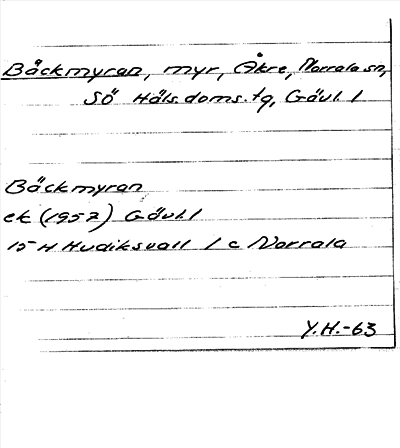 Bäckmyran, myr, Åkre, Norrala sn,
Sö Häls. doms. tg, Gävl. l
Bäckmyran
ek (1957) Gävl. l
15 H Hudiksvall 1 c Norrala
Y.H.-63